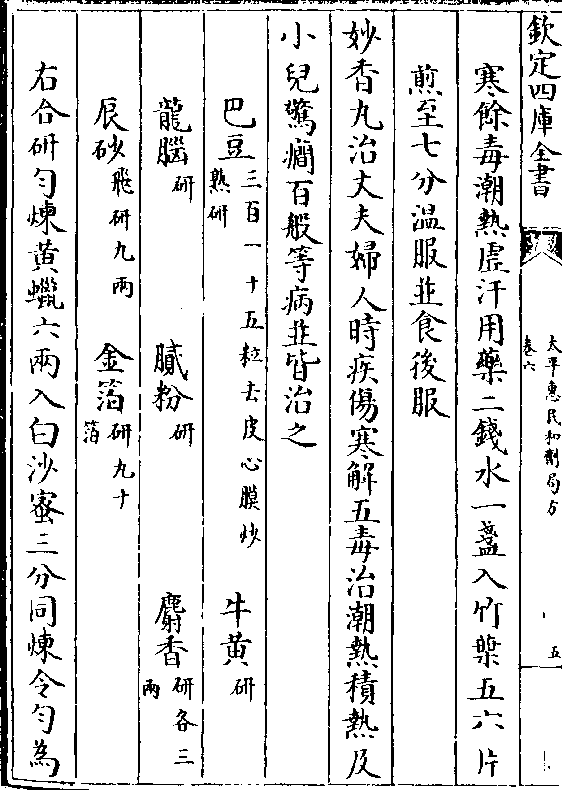 欽定四庫全書
太平惠民和劑局方
卷六
五
寒餘毒潮熱虛汗用藥二錢水一盞入竹葉五六片
煎至七分溫服並食後服
妙香丸治丈夫婦人時疾傷寒解五毒治潮熱積熱及
小兒驚癇百般等病並皆治之
巴豆三百一十五粒去皮心膜炒熟研 牛黃研
龍腦研 膩粉研 麝香研各三兩
辰砂飛研九兩 金箔研九十箔
右合研勻煉黃蠟六兩入白沙蜜三分同煉令勻為